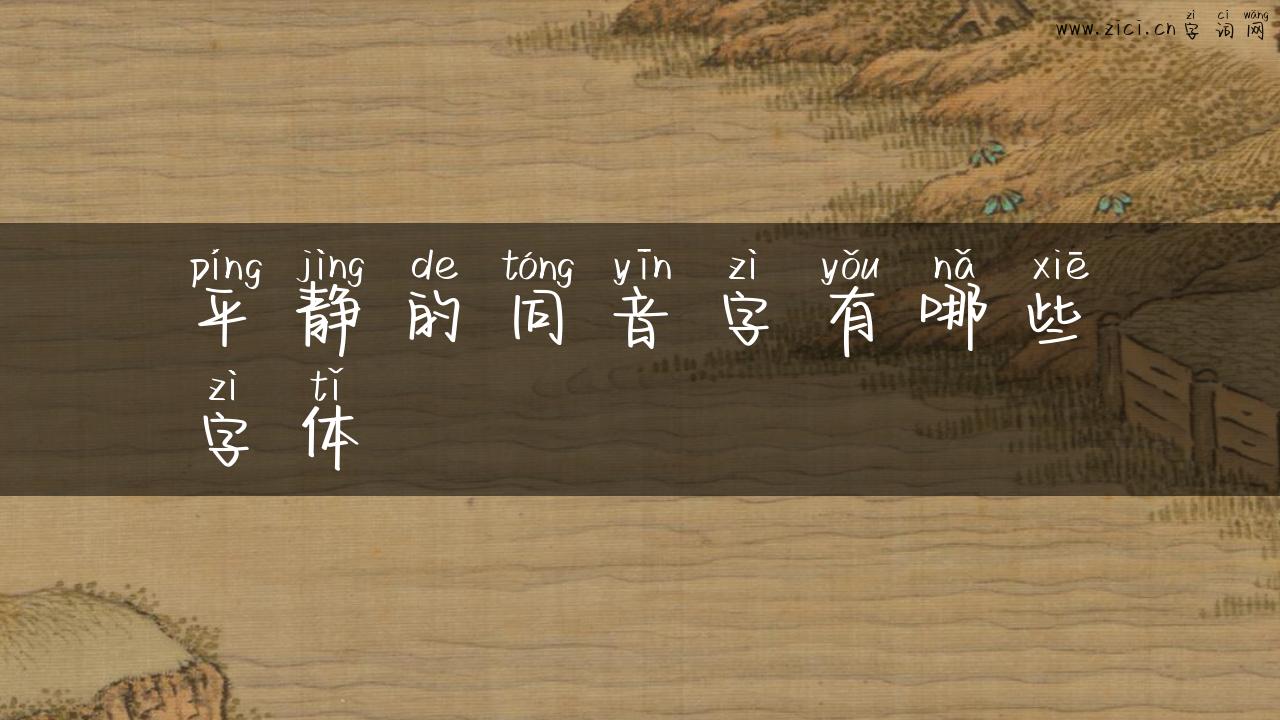 zì cí wǎng
www.zici.cn字词网
píng jìng de tóng yīn zì yǒu nǎ xiē
平静的同音字有哪些
zì tǐ
字体